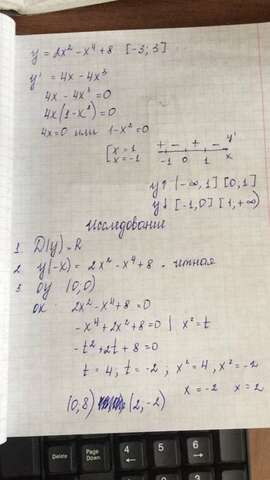 y = 2x² - x⁴ + 8 [-3; 3]
y' = 4x - 4x³
4x - 4x³ = 0
4x(1 - x²) = 0
4x = 0 или 1 - x² = 0
[x = 1
x = -1
+ - + - y'
-1 0 1 x
y↑ (-∞, 1] [0, 1]
y↓ [-1, 0] [1, +∞)
Исследование
1. D(y) - R
2 y(-x) = 2x² - x⁴ + 8 - чётная
3 oy (0; 0)
ox 2x² - x⁴ + 8 = 0
-x⁴ + 2x² + 8 = 0 | x² = t
-t² + 2t + 8 = 0
t = 4; t = -2, x² = 4, x² = -2
x = -2 x = 2
(0, 8) (2, -2)
Delete
End
Page Down
7
8
9
4
5
6
1
2